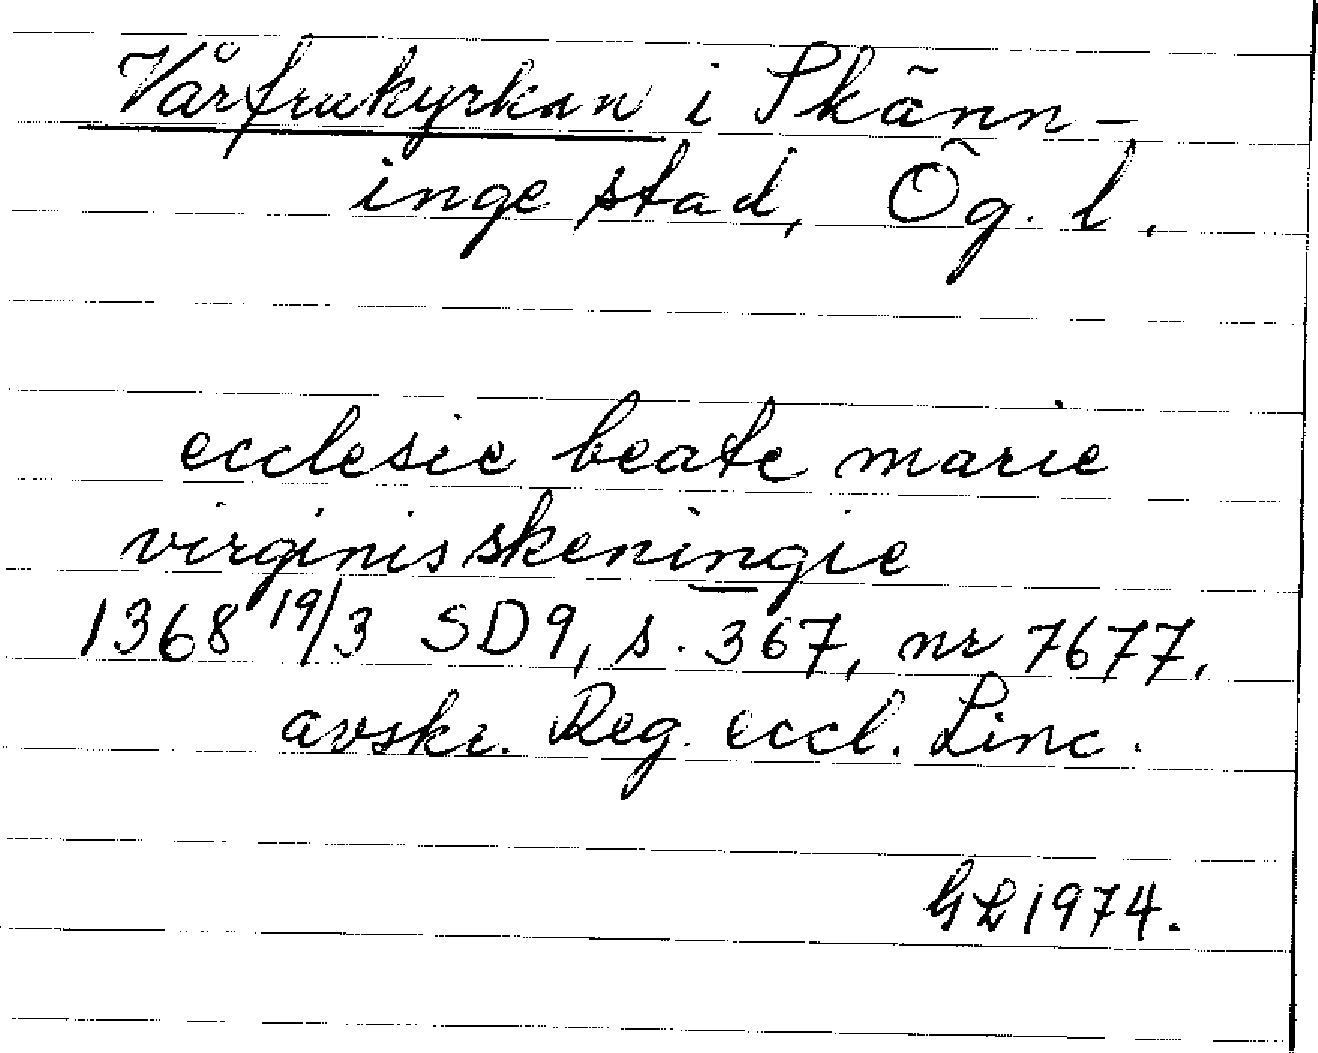 Vårfrukyrkan i Skänn-
inge stad, Ög. l.
ecclesie beate marie
virginis skeningie
1368 19/3 SD9, s. 367, nr 7677,
avskr. Reg. eccl. Linc.
GL 1974.